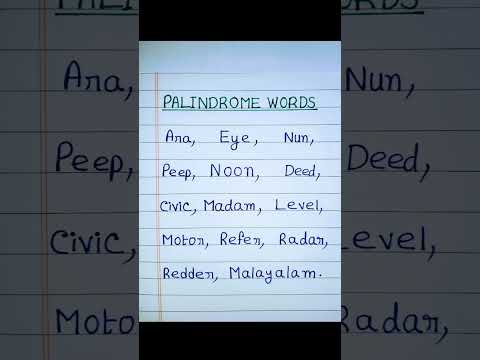 PALINDROME WORDS
Ara, Eye, Nun,
Peep, NOON, Deed,
Civic, Madam, Level,
Motor, Refer, Radar,
Redder, Malayalam.